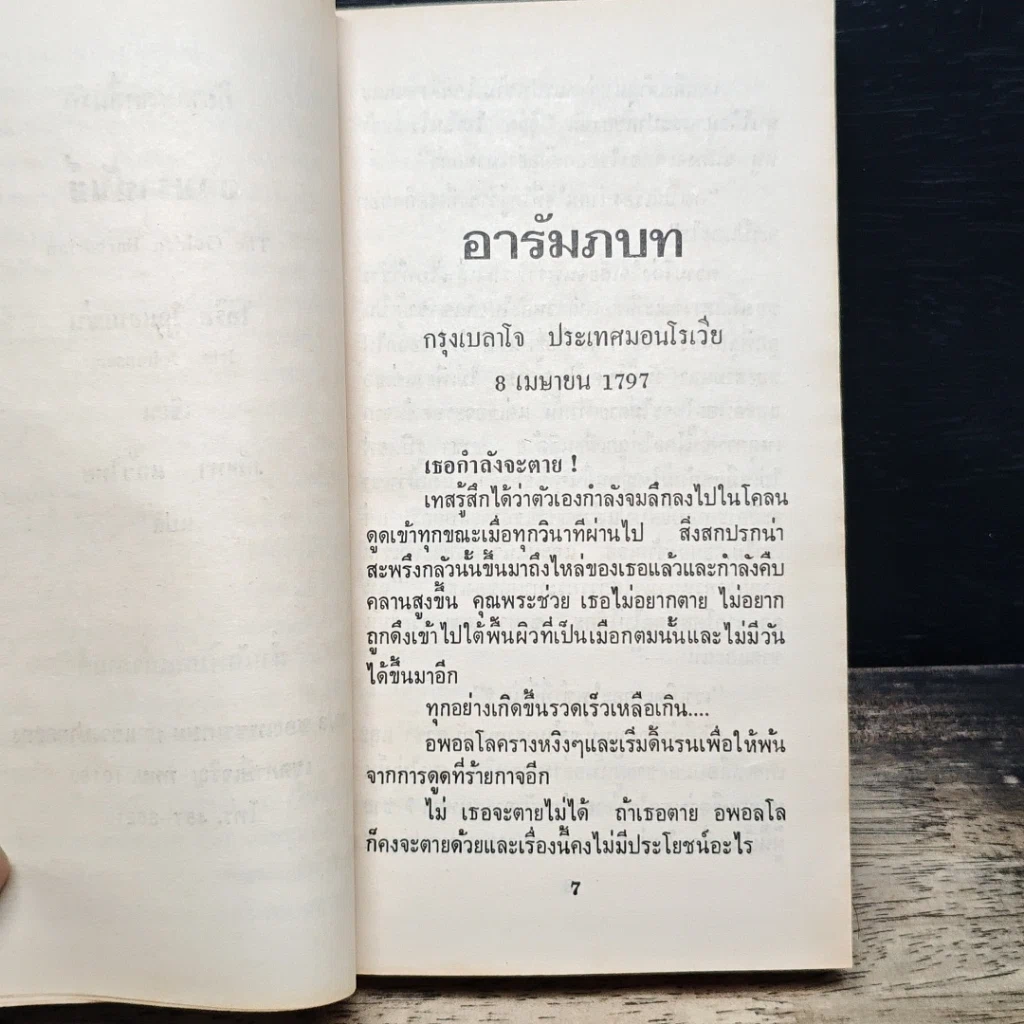 อารัมภบท
กรุงเบลาโจ ประเทศมอนโรเวีย
8 เมษายน 1797
เธอกำลังจะตาย !
เทสรู้สึกได้ว่าตัวเองกำลังจมลึกลงไปในโคลน
ดูดเข้าทุกขณะเมื่อทุกวินาทีผ่านไป สิ่งสกปรกน่า
สะพรึงกลัวนั้นขึ้นมาถึงไหล่ของเธอแล้วและกำลังคืบ
คลานสูงขึ้น คุณพระช่วย เธอไม่อยากตาย ไม่อยาก
ถูกดึงเข้าไปใต้พื้นผิวที่เป็นเมือกตมนั้นและไม่มีวัน
ได้ขึ้นมาอีก
ทุกอย่างเกิดขึ้นรวดเร็วเหลือเกิน....
อพอลโลครางหงิงๆและเริ่มดิ้นรนเพื่อให้พ้น
จากการดูดที่ร้ายกาจอีก
ไม่ เธอจะตายไม่ได้ ถ้าเธอตาย อพอลโล
ก็คงจะตายด้วยและเรื่องนี้คงไม่มีประโยชน์อะไร
7